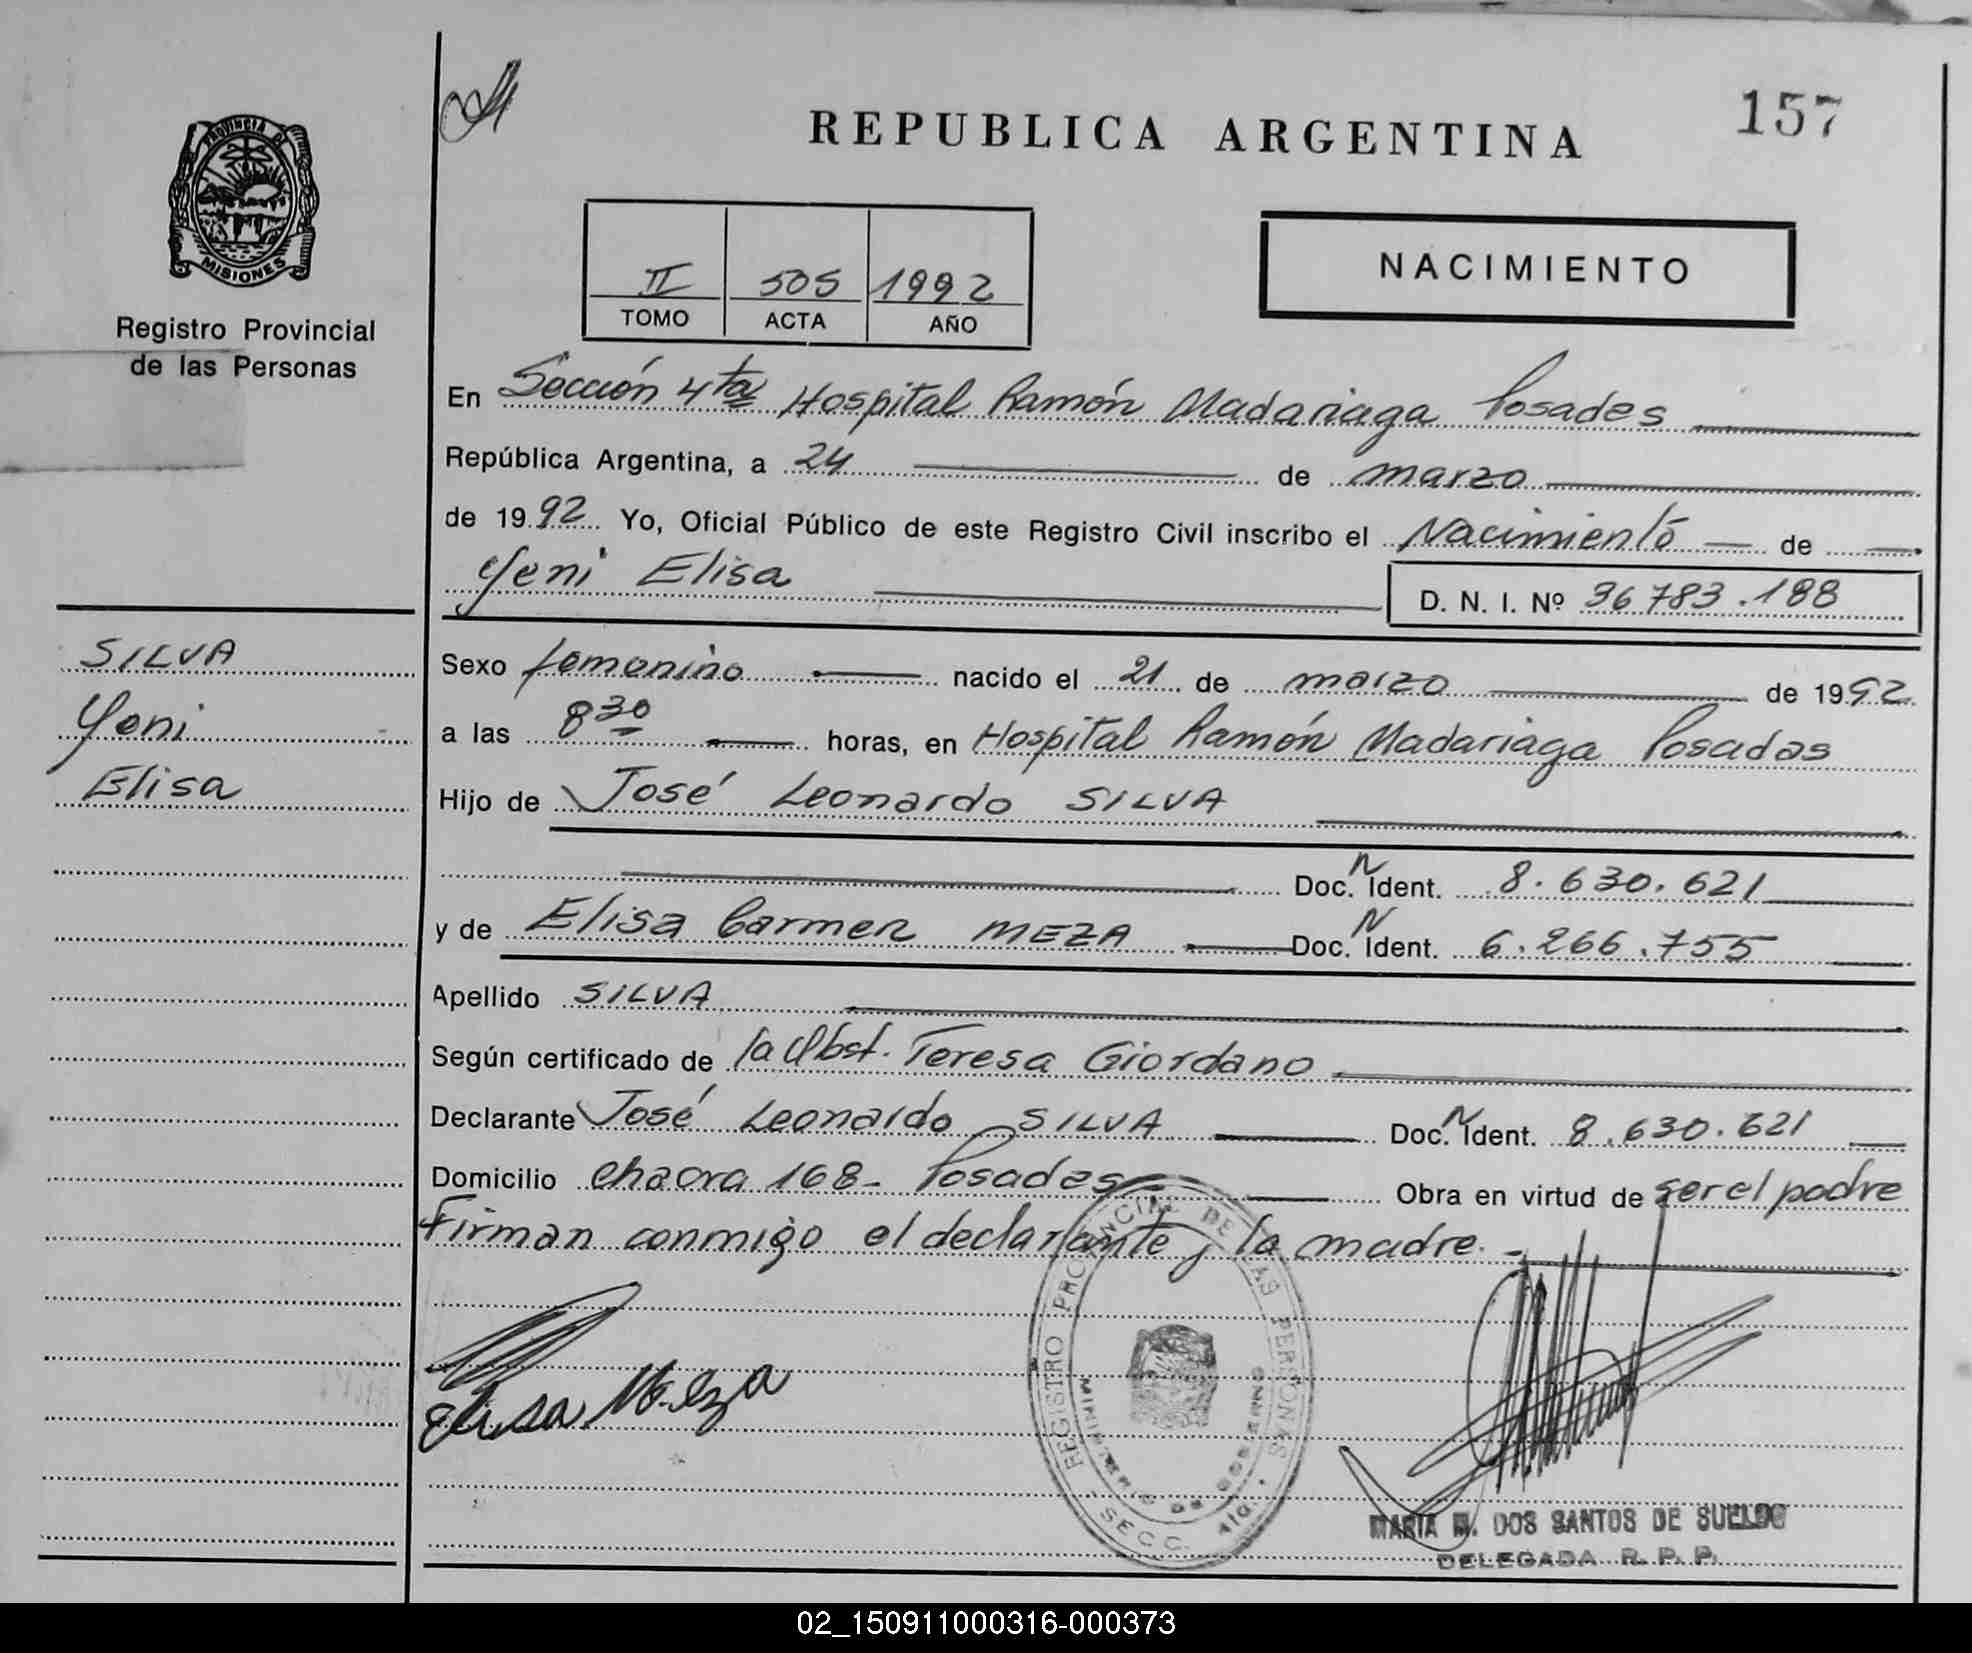 REPUBLICA ARGENTINA
157
PROVINCIA DE
MISIONES
Registro Provincial
de las Personas
II 505 1992
TOMO ACTA AÑO
NACIMIENTO
En Sección 4ta Hospital Ramón Madariaga Posadas
República Argentina, a 24 de marzo
de 1992 Yo, Oficial Público de este Registro Civil inscribo el Nacimiento de
Yeni Elisa D. N. I. Nº 36783.188
SILVA
Yeni
Elisa
Sexo femenino nacido el 21 de marzo de 1992
a las 8 30 horas, en Hospital Ramón Madariaga Posadas
Hijo de José Leonardo SILVA
Doc. N Ident. 8.630.621
y de Elisa Carmen MEZA Doc. N Ident. 6.266.755
Apellido SILVA
Según certificado de la Obst. Teresa Giordano
Declarante José Leonardo SILVA Doc. N Ident. 8.630.621
Domicilio chacra 168- Posadas Obra en virtud de ser el padre
Firman conmigo el declarante y la madre.-
Elisa Meza
REGISTRO PROVINCIAL DE LAS PERSONAS
MINISTERIO DE GOBIERNO
SECC. 4ta.
MARIA M. DOS SANTOS DE SUELDO
DELEGADA R. P. P.
02_150911000316-000373